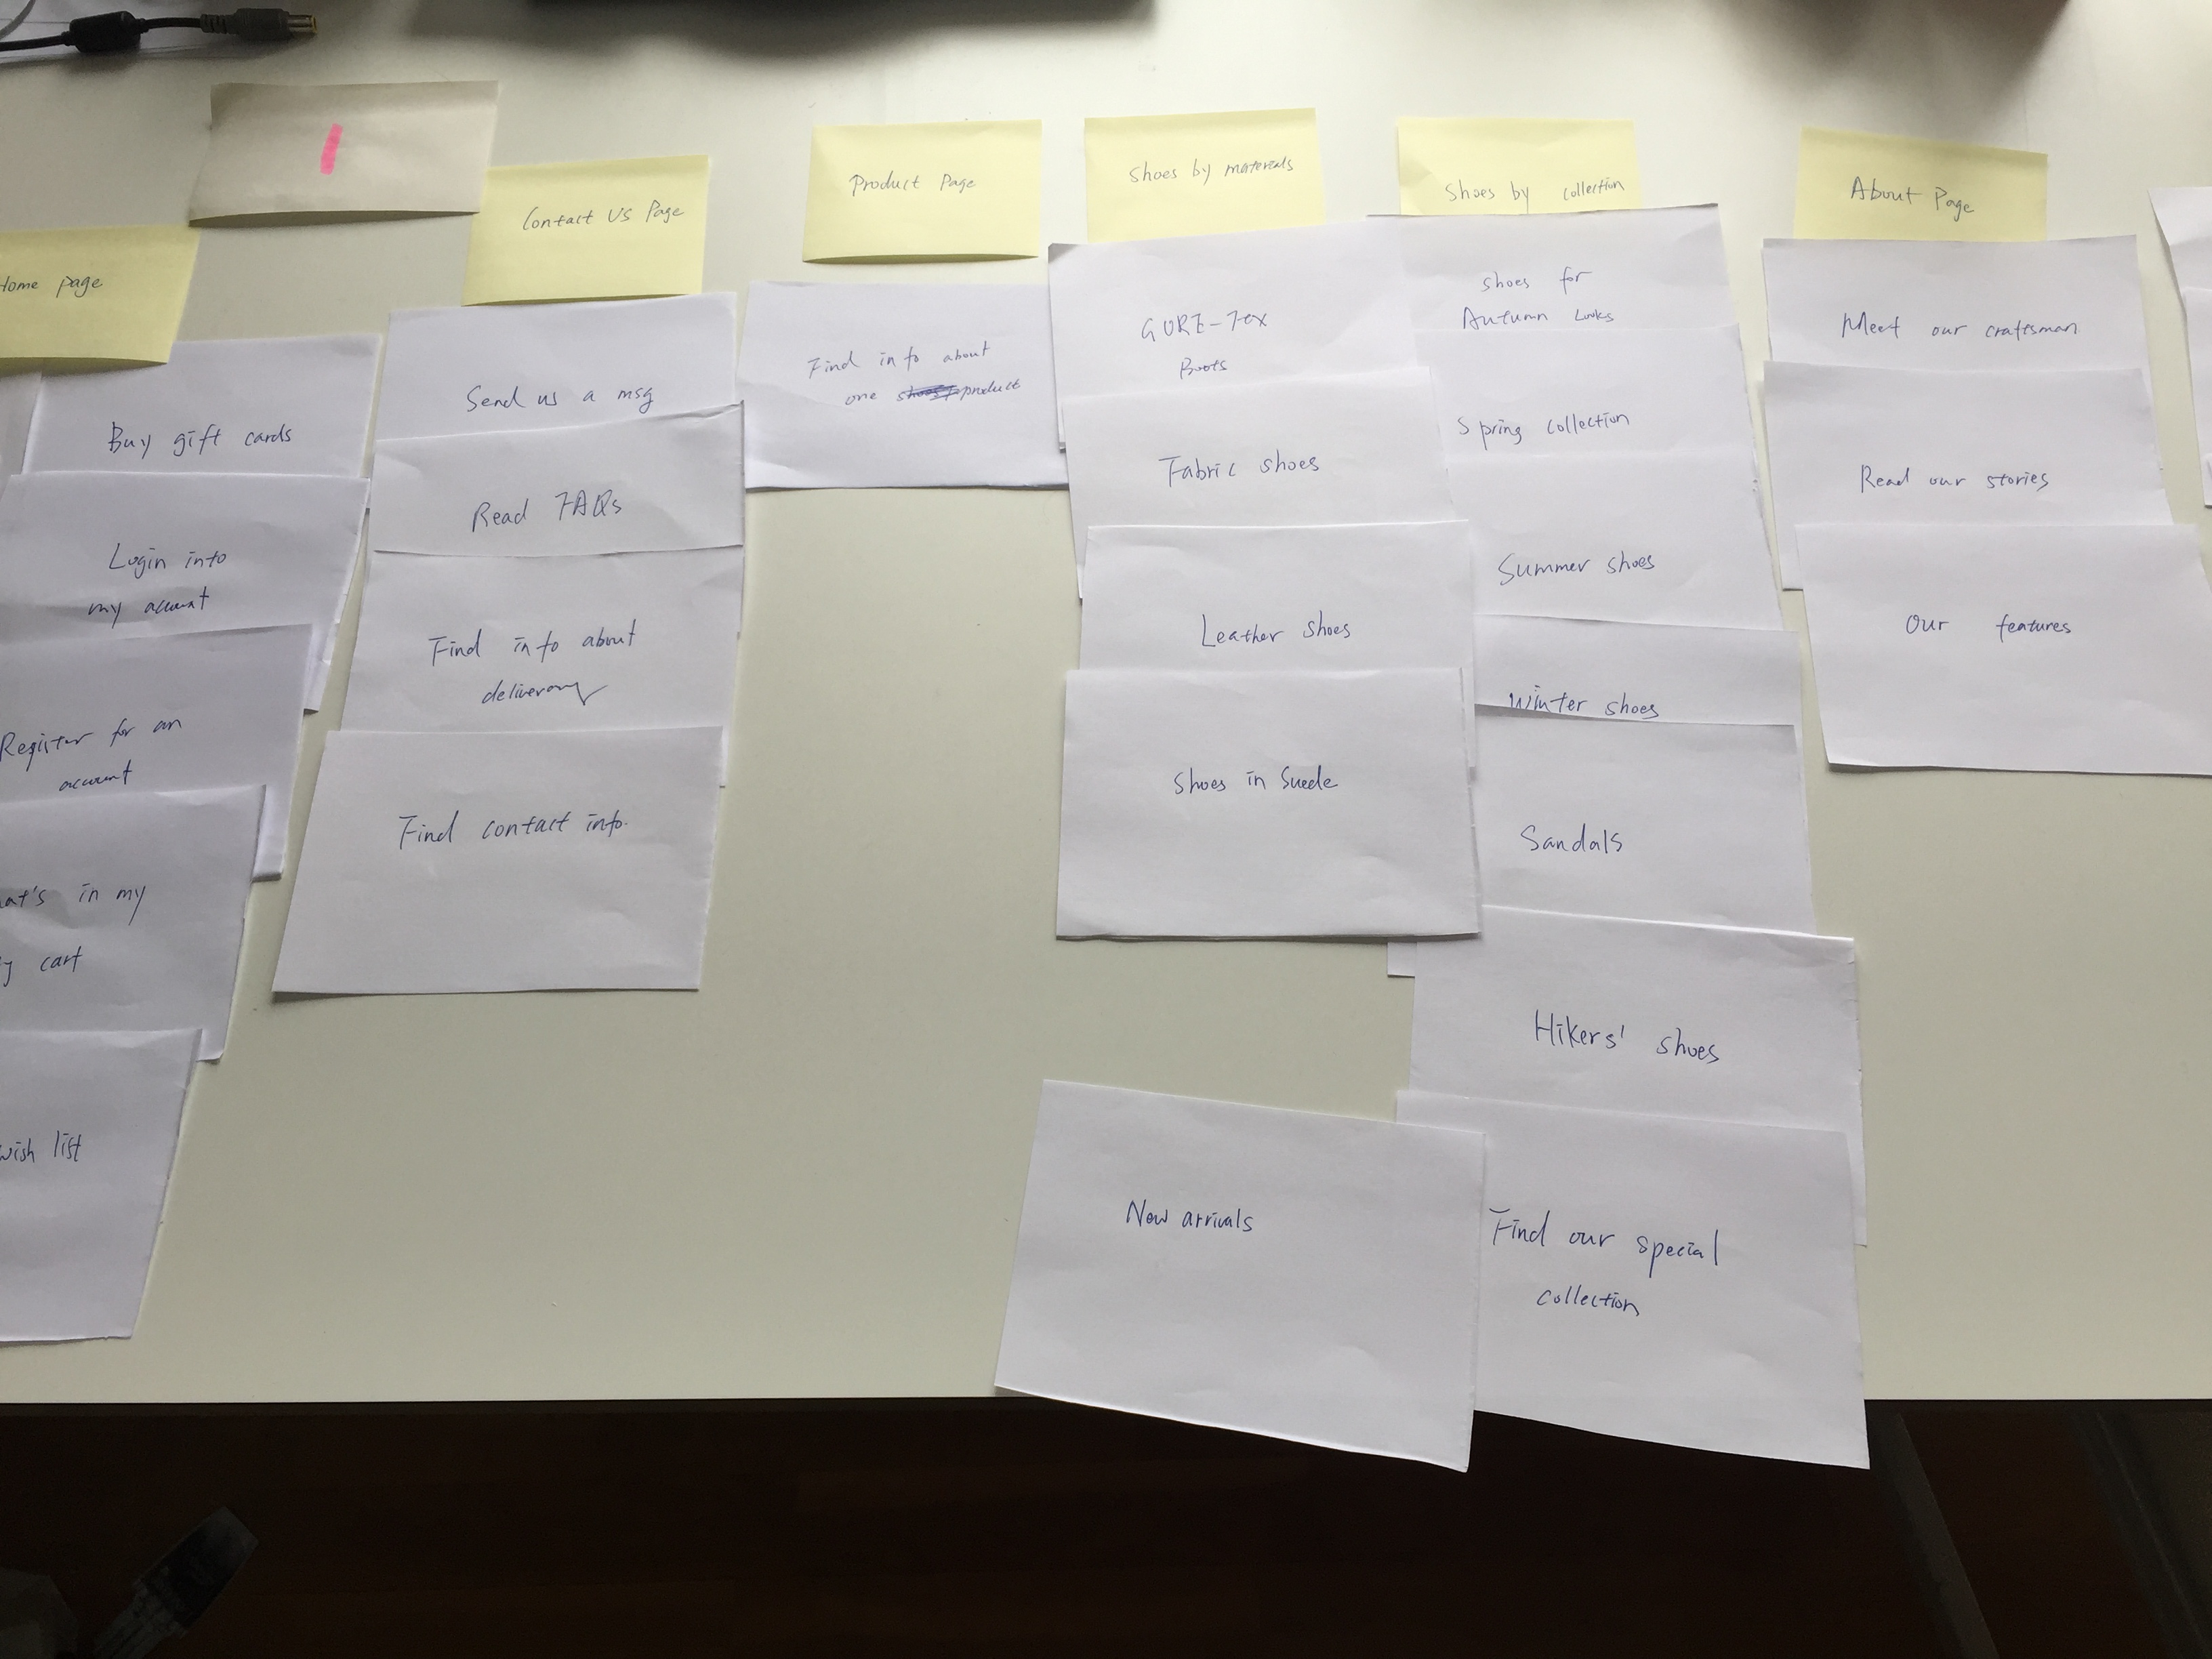 Home page
Buy gift cards
Login into
my account
Register for an
account
in my
cart
wish list
Contact Us Page
Send us a msg
Read FAQs
Find info about
delivery
Find contact info.
Product Page
Find info about
one product
Shoes by materials
GORE-Tex
Boots
Fabric shoes
Leather shoes
Shoes in Suede
New arrivals
Shoes by collection
Shoes for
Autumn Looks
Spring collection
Summer shoes
Winter shoes
Sandals
Hikers' shoes
Find our special
collection
About Page
Meet our craftsman
Read our stories
Our features